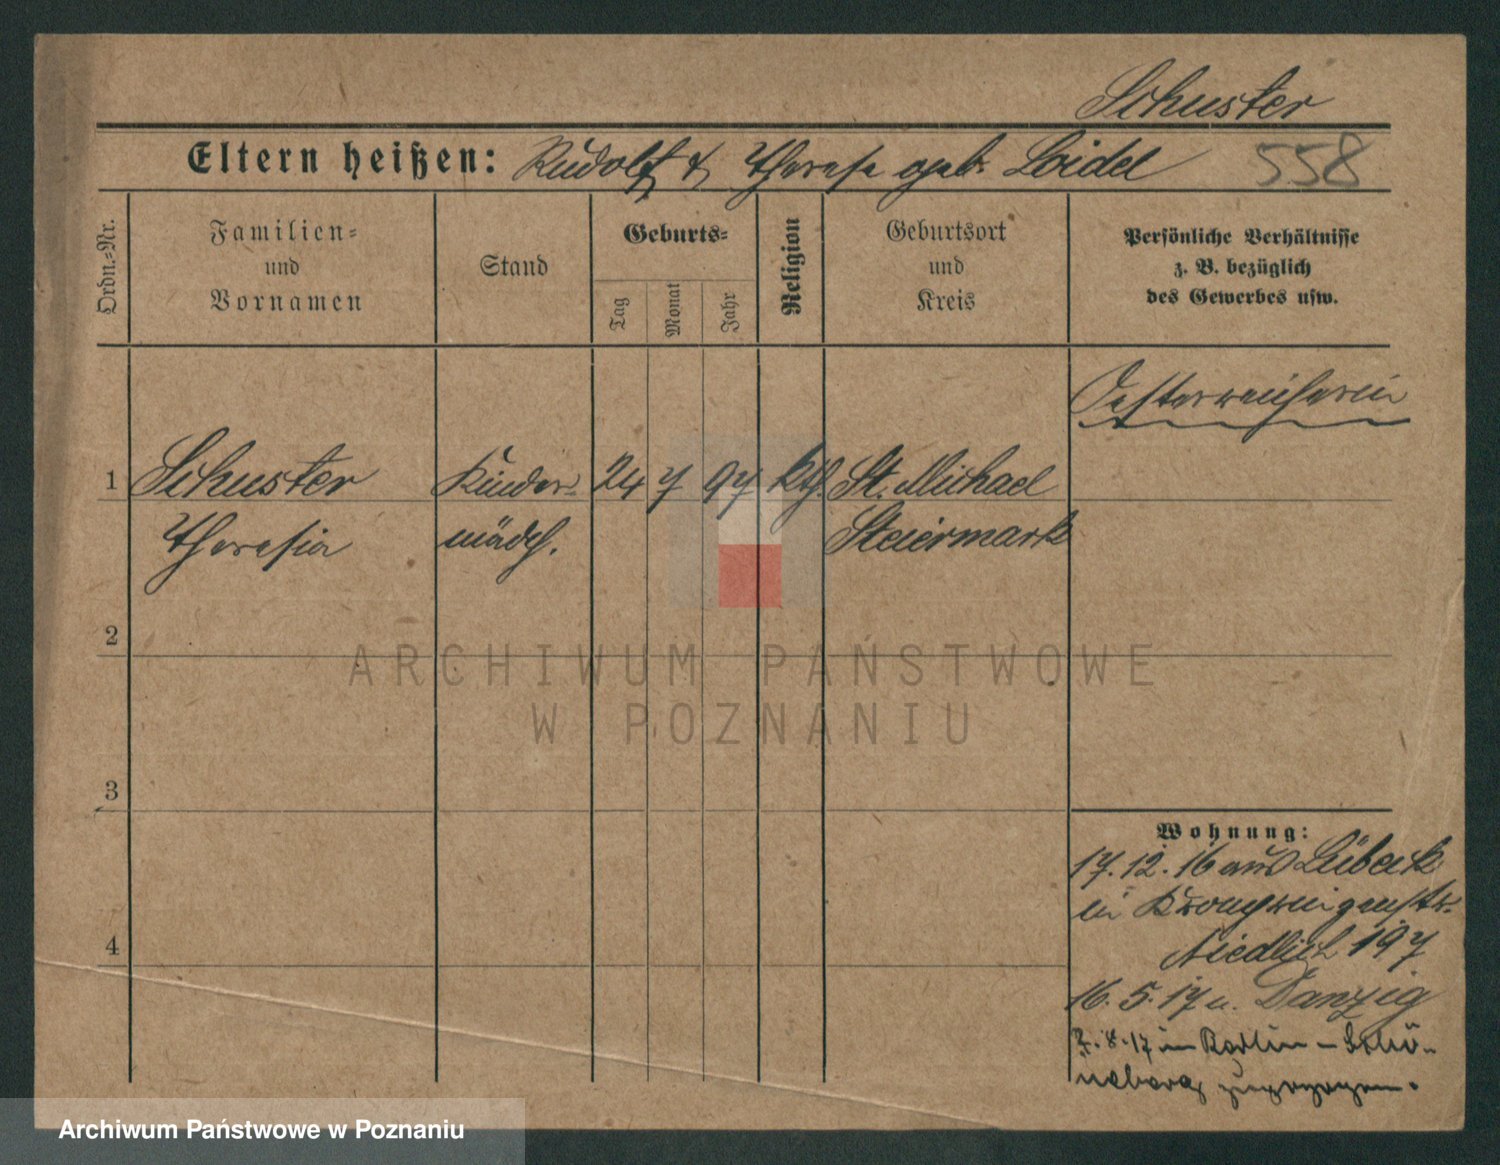 Schuster
Eltern heißen: Rudolf & Therese geb. Loidel 558
Ordn.-Nr.
Familien-
und
Vornamen
Stand
Geburts-
Tag
Monat
Jahr
Religion
Geburtsort
und
Kreis
Persönliche Verhältnisse
z. B. bezüglich
des Gewerbes usw.
Oesterreicherin
1 Schuster Kinder- 24 7 97 kth. St. Michael
Theresia mädch. Steiermark
2
3
4
Wohnung:
17.12.16 aus Lübeck
in Kronprinzenstr.
Niedlich 197
16.5.17 n. Danzig
7.8.17 in Berlin-Schö-
neberg zugezogen.
ARCHIWUM PAŃSTWOWE
W POZNANIU
Archiwum Państwowe w Poznaniu